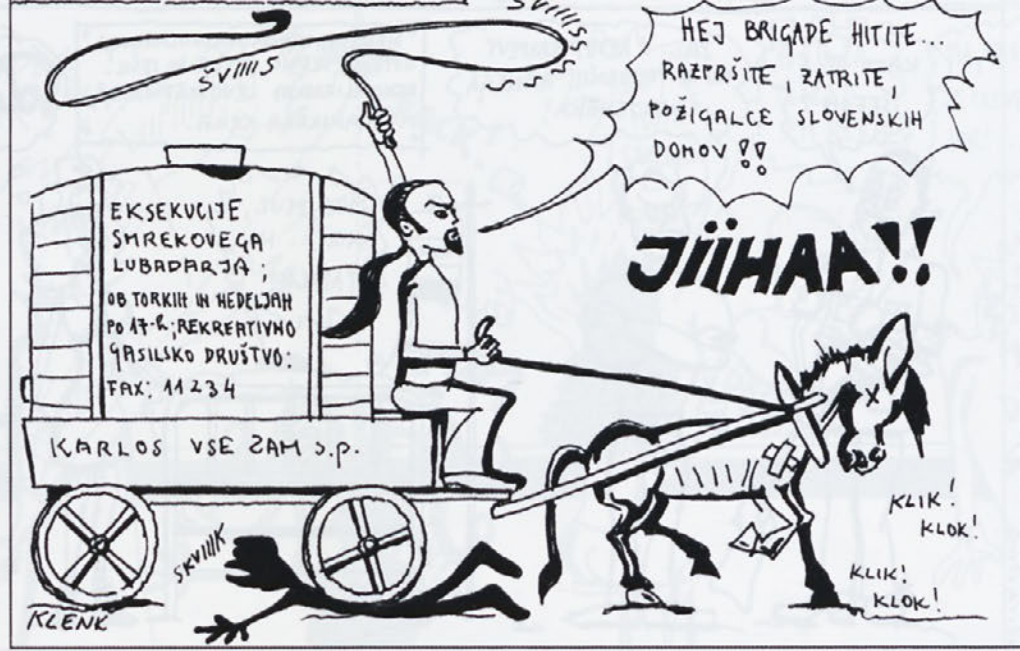 ŠVIIIIS
ŠVIIIIS
HEJ BRIGADE HITITE...
RAZPRŠITE, ZATRITE,
POŽIGALCE SLOVENSKIH
DOMOV!!
JIIHAA!!
EKSEKUCIJE
SMREKOVEGA
LUBADARJA:
OB TORKIH IN NEDELJAH
PO 17-h; REKREATIVNO
GASILSKO DRUŠTVO:
FAX: 11234
KARLOS VSE ZAM s.p.
SKVIIIK
KLIK!
KLOK!
KLIK!
KLOK!
KLENK